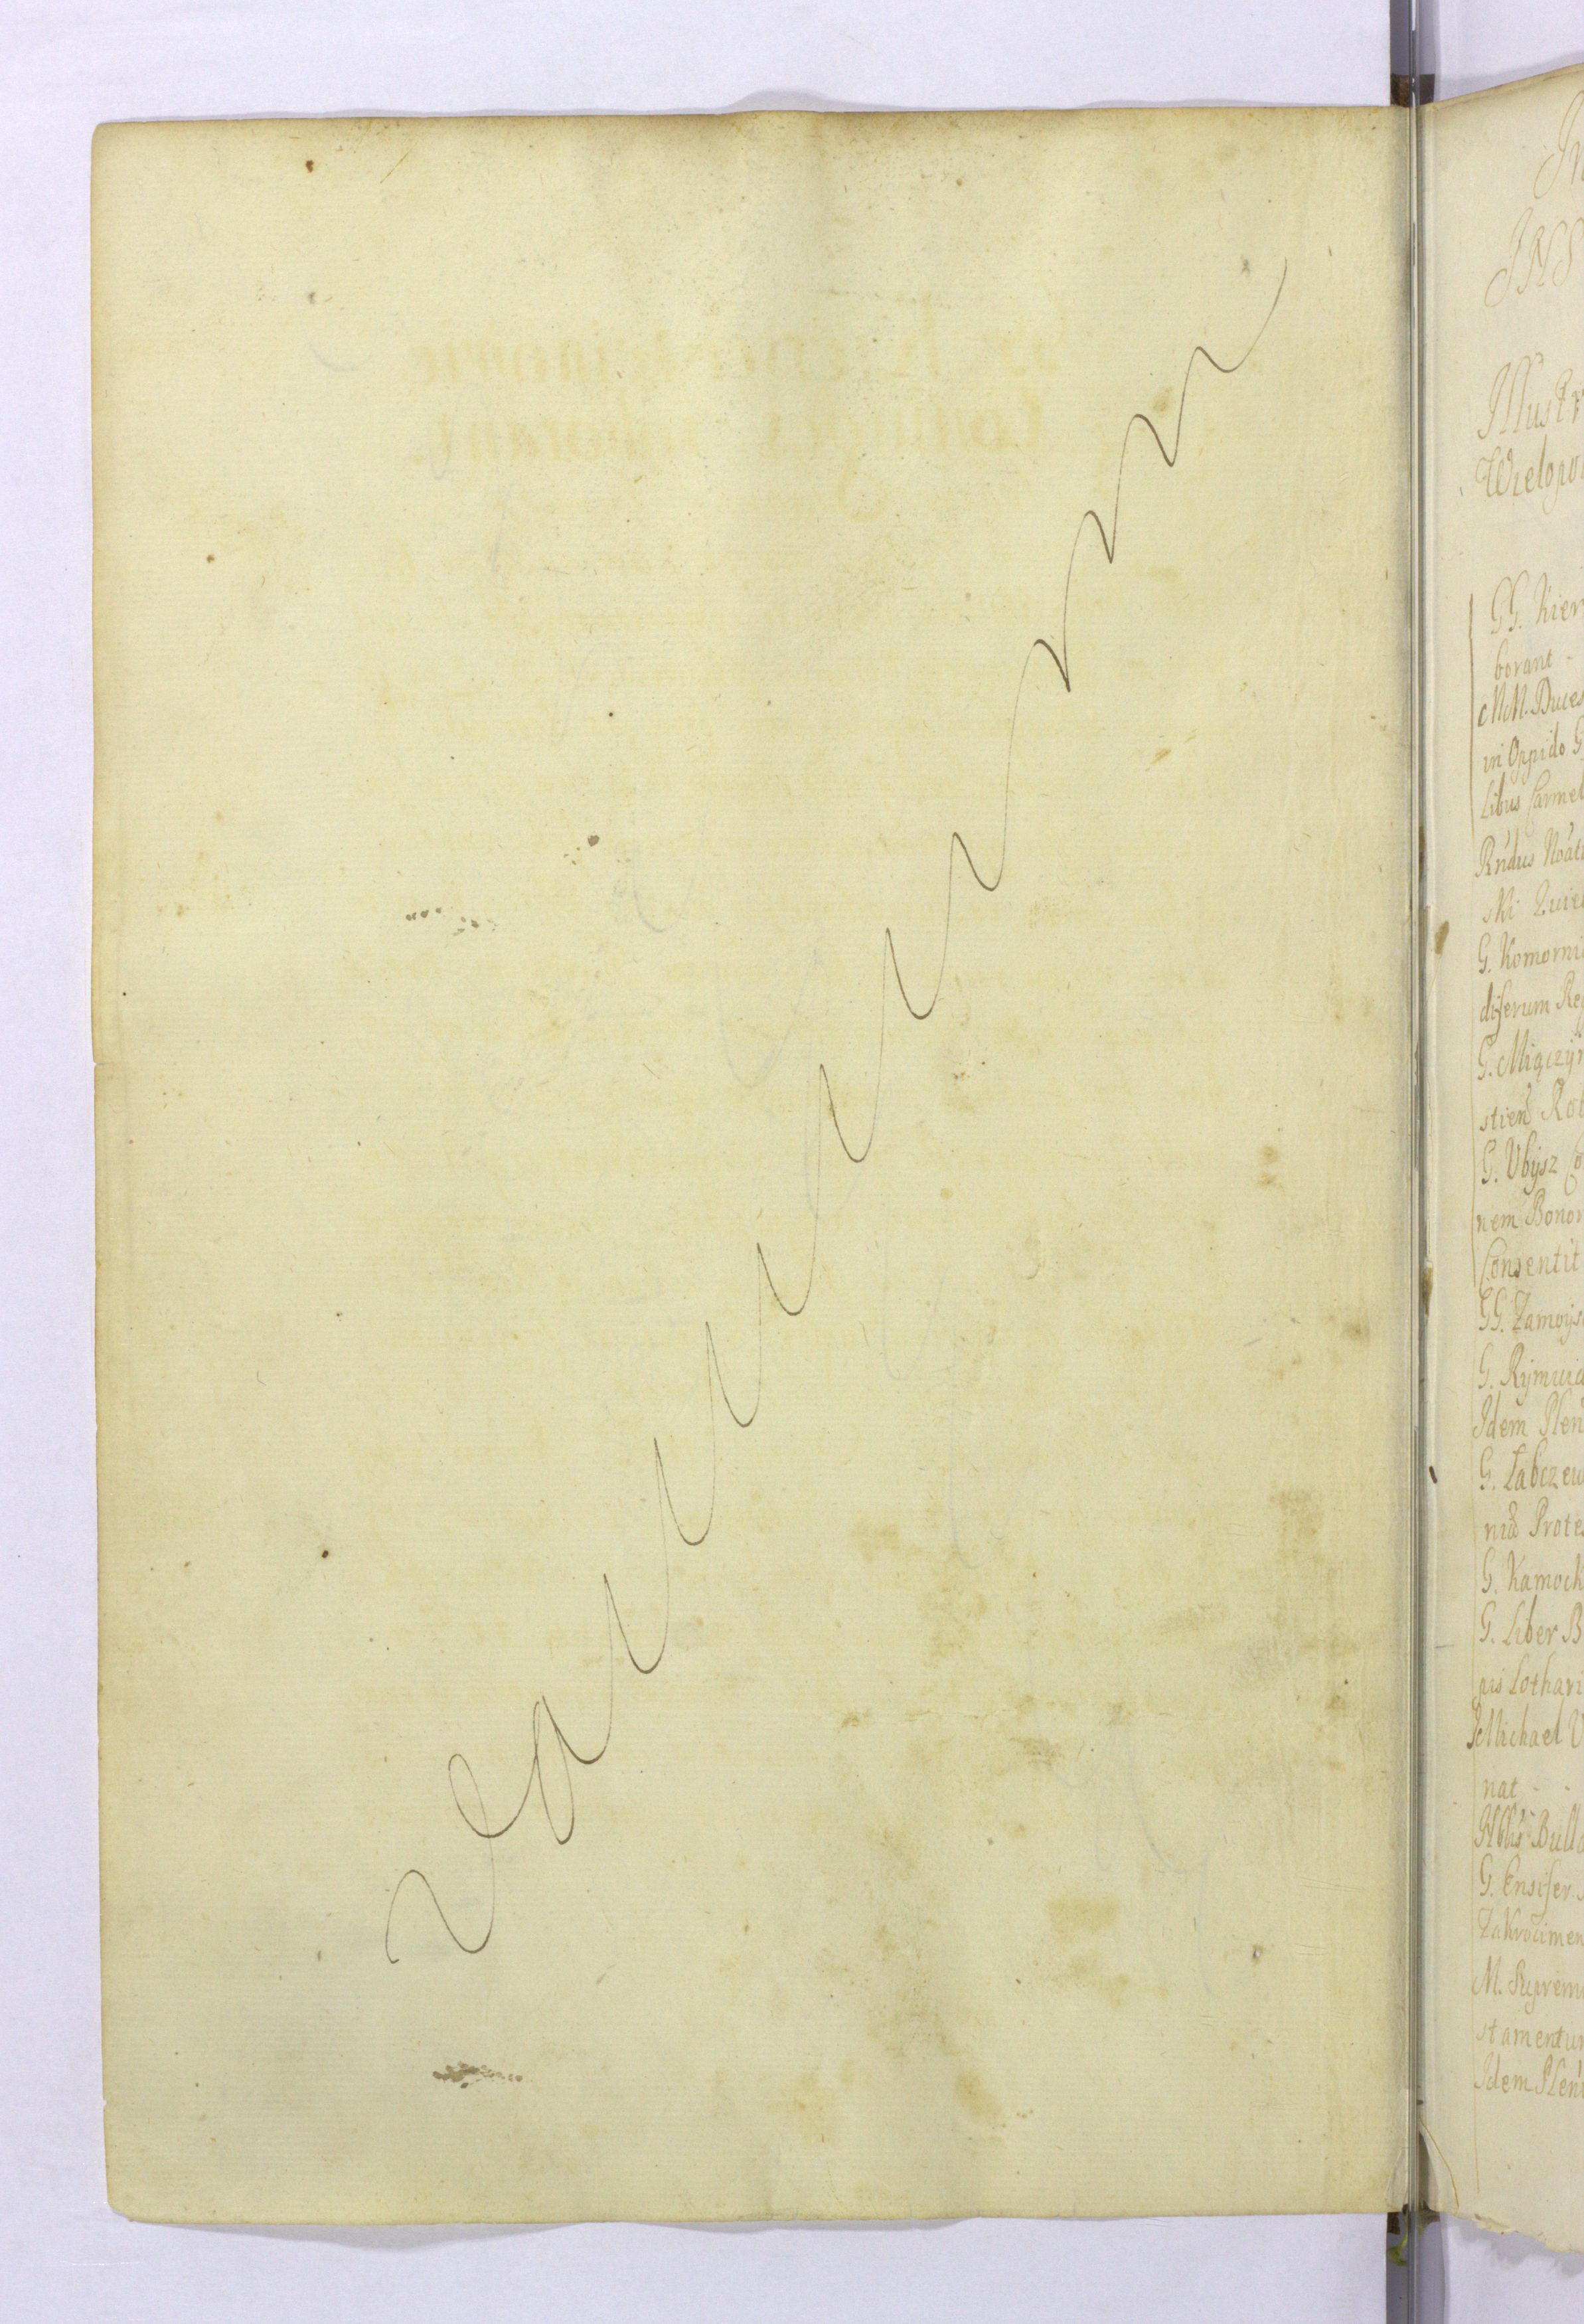 Vacuum
In
INS
Illustr
Wielopol
GG. Kier
borant -
MM. Duces
in Oppido G
libus Carmel
Rndus Noāti
ski Zwie
G. Komorni
diferum Re
G. Miączyn
G. Ubysz Co
nem Bonor
Consentit
GG. Zamoys
G. Rymwid
Idem Plen
G. Łabczew
Protes
G. Kamock
G. Liber B
pis Lothari
Michael V
nat - -
Bulla
G. Ensifer
Zakrocimen
M. Suprem
stamentum
Idem Plen